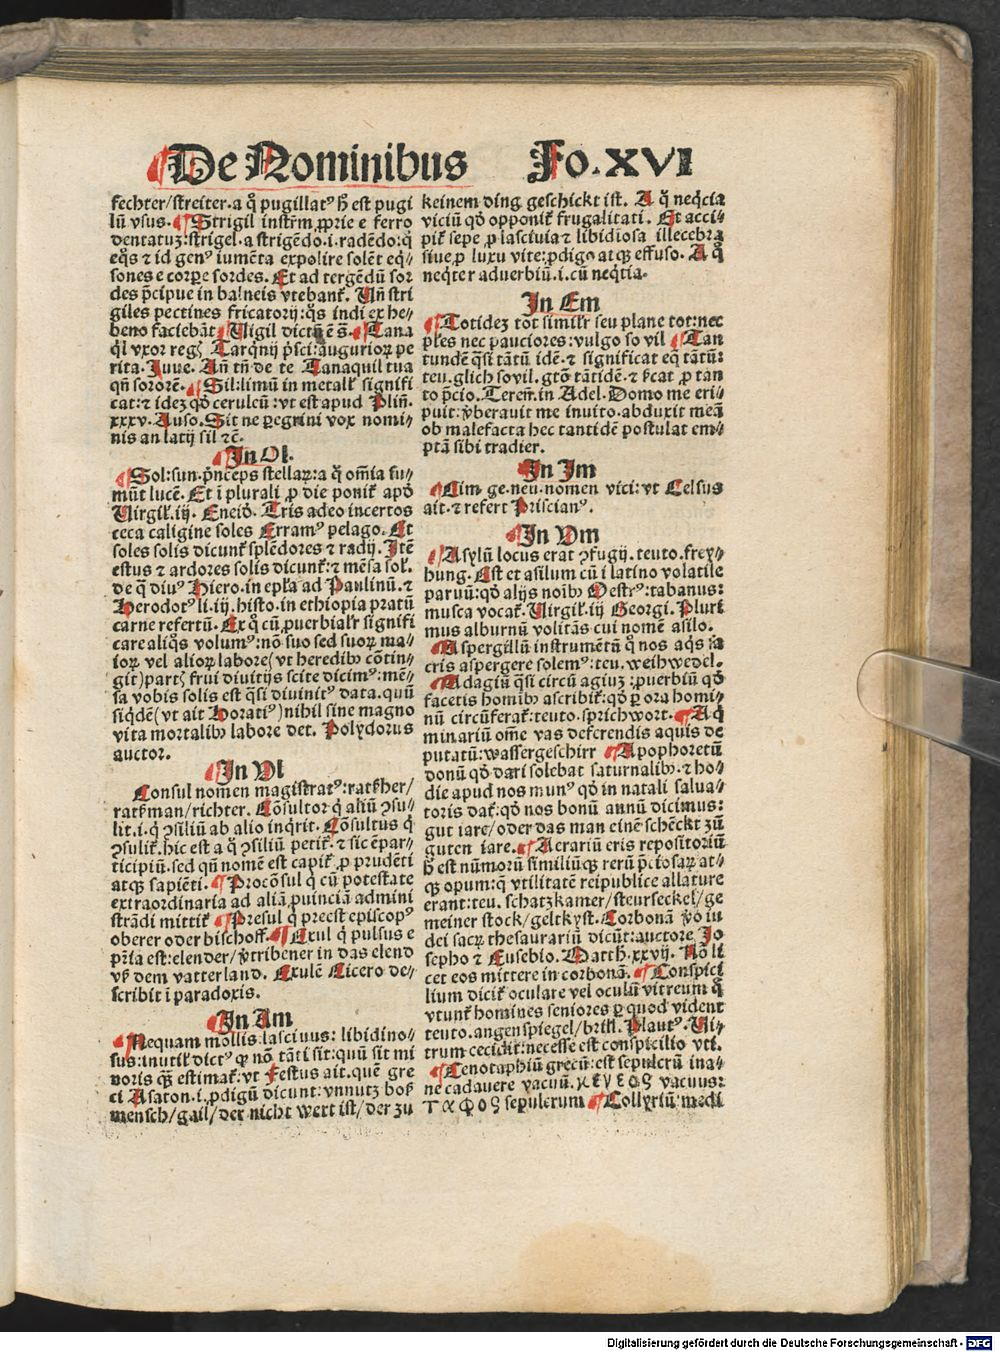 De Nominibus Fo.XVI
fechter/streiter. a q̄ pugillatꝰ h̄ est pugi
lū vsus. Strigil instrm̄ ꝓprie e ferro
dentatuz:strigel. a strigēdo.i.radēdo:q̄
eq̄s ⁊ id genꝰ iumēta expolire solēt eq̄//
sones e corpe sordes. Et ad tergēdū sor
des p̄cipue in balneis vtebant̄. Vn̄ stri
giles pectines fricatorij:q̄s indi ex he//
beno faciebāt Uigil dictū ē s̄. Tana
q̄l vxor regꝭ Tarq̄nij p̄sci:auguriorꝝ pe
rita. Juue. An̄ tn̄ de te Tanaquil tua
qn̄ sororē. Sil:limū in metall̄ signifi
cat:⁊ idez qđ ceruleū:vt est apud Plin̄.
xxxv. Auso. Sit ne peregrini vox nomi//
nis an latij sil ⁊c̄.
In Ol.
Sol:sun. p̄nceps stellarꝝ:a q̄ om̄ia su//
mūt lucē. Et ī plurali ꝓ die ponit̄ apđ
Virgil̄.iij. Eneiđ. Tris adeo incertos
ceca caligine soles Erramꝰ pelago. Et
soles solis dicunt̄ splēdores ⁊ radij. Itē
estus ⁊ ardores solis dicunt̄:⁊ mēsa sol̄.
de q̄ diuꝰ Hiero.in epl̄a ad Paulinū.⁊
Herodotꝰ li.iij.histo.in ethiopia pratū
carne refertū. Ex q̄ cū ꝓuerbialr̄ signifi
care aliq̄s volumꝰ:nō suo sed suorꝝ ma//
iorꝝ vel aliorꝝ labore(vt heredibꝫ cōtin//
git)partꝭ frui diuitijs scite dicimꝰ:mē//
sa vobis solis est q̄si diuinitꝰ data.quū
siq̄dē(vt ait Horatiꝰ)nihil sine magno
vita mortalibꝫ labore det. Polydorus
auctor.
In Vl
Consul nomen magistratꝰ:ratßher/
ratßman/richter. Cōsultor q̄ aliū ꝯsu//
lit.i.q̄ ꝯsiliū ab alio inq̄rit. Cōsultus q̄
ꝯsulit̄.hic est a q̄ ꝯsiliū petit̄.⁊ sic ē par//
ticipiū.sed qn̄ nomē est capit̄ ꝓ prudēti
atqꝫ sapiēti. Procōsul q̄ cū potestate
extraordinaria ad aliā ꝓuinciā admini
strādi mittit̄ Presul q̄ preest episcopꝰ
oberer oder bischoff. Exul q̄ pulsus e
pr̄ia est:elender/v̄tribener in das elend
vß dem vatterland. Exulē Cicero de//
scribit ī paradoxis.
In Am
Nequam mollis lasciuus: libidino//
sus:inutil̄ dictꝰ qꝫ nō tāti sit:quū sit mi
noris qꝫ estimat̄:vt Festus ait.quē gre
ci Asaton.i.ꝓdigū dicunt:vnnutz boß
mensch/gail/der nicht wert ist/der zu
keinem ding geschickt ist. A q̄ neq̄cia
viciū qđ opponit̄ frugalitati. Et acci//
pit̄ sepe ꝓ lasciuia ⁊ libidiosa illecebra
siue ꝓ luxu vite:ꝓdigo atqꝫ effuso. A q̄
neq̄ter aduerbiū.i.cū neq̄tia.
In Em
Totidez tot simil̄r seu plane tot:nec
pl̄es nec pauciores:vulgo so vil Tan
tundē q̄si tātū idē.⁊ significat eq̄ tātū:
teu.glich so vil.gtō tātidē.⁊ ꝓ tan
to p̄cio. Teren̄.in Adel. Domo me eri//
puit:v̄berauit me inuito.abduxit meā
ob malefacta hec tantidē postulat em//
ptā sibi tradier.
In Im
Cim ge.neu.nomen vici:vt Celsus
ait.⁊ refert Priscianꝰ.
In Vm
Asylū locus erat ꝯfugij.teuto.frey//
hung. Est et asilum cū i latino volatile
paruū:qđ alijs noībꝫ Oestrꝰ:tabanus:
musca vocat̄. Virgil̄.iij Georgi. Pluri
mus alburnū volitās cui nomē asilo.
Aspergillū instrumētū q̄ nos aq̄s sa
cris aspergere solemꝰ:teu.weihwedel.
Adagiū q̄si circū agiuz:ꝓuerbiū qđ
facetis homībꝫ ascribit̄:qđ ꝑ ora homi//
nū circūferat̄:teuto.sprichwort. Aq̄
minariū om̄e vas deferendis aquis de
putatū:wassergeschirr Apophoretū
donū qđ dari solebat saturnalibꝫ.⁊ ho//
die apud nos munꝰ qđ in natali salua//
toris dat̄:qđ nos bonū annū dicimus:
gut iare/oder das man einē schēckt zū
guten iare. Aerariū eris repositoriū
h̄ est nūmorū similiūqꝫ rerū p̄ciosarꝝ at//
qꝫ opum:q̄ vtilitatē reipublice allature
erant:teu. schatzkamer/steurseckel/ge
meiner stock/geltkyst. Corbonā v̄o iu
dei sacrꝝ thesaurariū dicūt:auctore Jo
sepho ⁊ Eusebio. Matth.xxvij. Nō li
cet eos mittere in corbonā. Conspici
lium dicit̄ oculare vel oculū vitreum q̄
vtunt̄ homines seniores ꝑ quod vident
teuto.augenspiegel/brill. Plautꝰ. Vi//
trum cecidit:necesse est conspicilio vti.
Cenotaphiū grecū:est sepulcrū ina//
ne cadauere vacuū. ϰενεος vacuus:
ταφος sepulcrum Collyriū medi
Digitalisierung gefördert durch die Deutsche Forschungsgemeinschaft - DFG